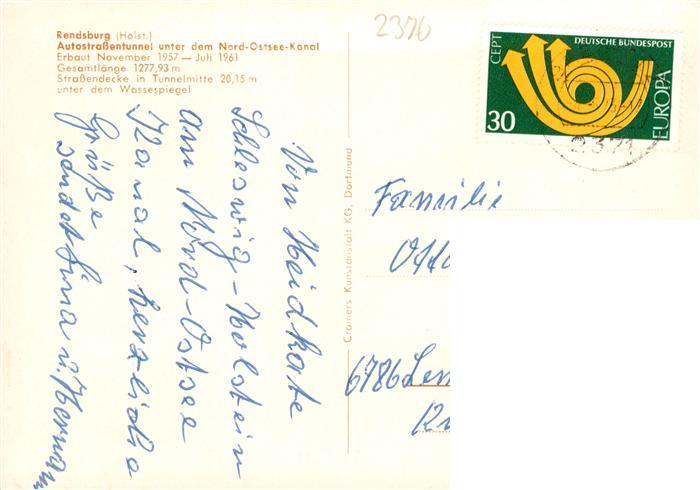 Rendsburg (Holst.)
Autostraßentunnel unter dem Nord-Ostsee-Kanal
Erbaut November 1957 — Juli 1961
Gesamtlänge 1277,93 m
Straßendecke in Tunnelmitte 20,15 m
unter dem Wasserspiegel
Von Heidkate
Schleswig-Holstein
am Nord-Ostsee
Kanal, herzliche
Grüße
sendet Irma u. Herman
Cramers Kunstanstalt KG, Dortmund
2376
CEPT
DEUTSCHE BUNDESPOST
30
EUROPA
2371
Familie
Otto
6786 Lem